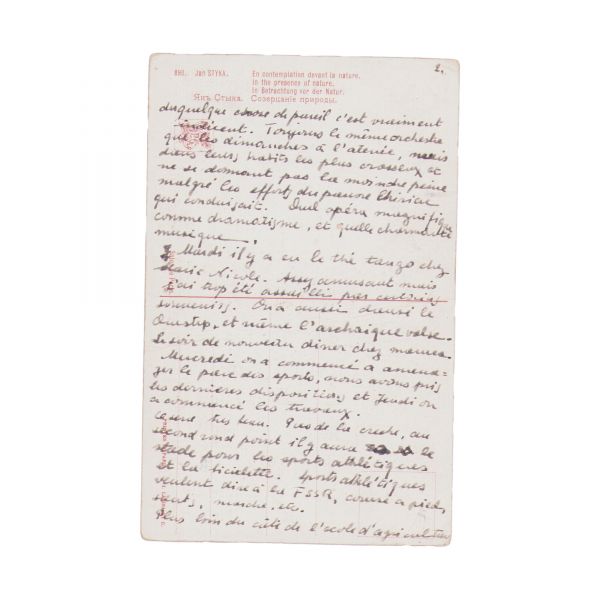 2.
890. Jan STYKA. En contemplation devant la nature.
In the presence of nature.
In Betrachtung vor der Natur.
Янъ Стыка. Созерцаніе природы.
du quelque chose de pareil c'est vraiment
indécent. Toujours le même orchestre
que les dimanches à l'atenée, mais
dans leurs habits les plus crasseux et
ne se donnant pas la moindre peine
malgré les efforts du pauvre
qui conduisait. Quel opéra magnifique
comme dramatisme, et quelle charmante
musique.
Mardi il y a eu le thé tango chez
Marie Nicole. Assez amusant mais
j'ai trop été assaillie par
souvenirs. On a aussi dansé le
Onestep, et même l'archaique valse.
Le soir de nouveau diner chez
Mercredi on a commencé à aména-
ger le parc des sports, nous avons pris
les dernières dispositions et Jeudi on
a commencé les travaux.
Ce sera très beau. Près de la creche, au
second rond point il y aura le
stade pour les sports athlétiques
et la bicielette. Sports athlétiques
veulent dire à la FSSR, course à pied,
sauts, marche, etc.
Plus loin du côté de l'école d'agriculture